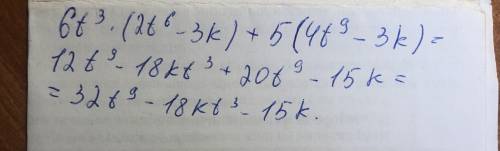 6t³·(2t⁶-3k)+5(4t⁹-3k)=
12t⁹-18kt³+20t⁹-15k=
=32t⁹-18kt³-15k.